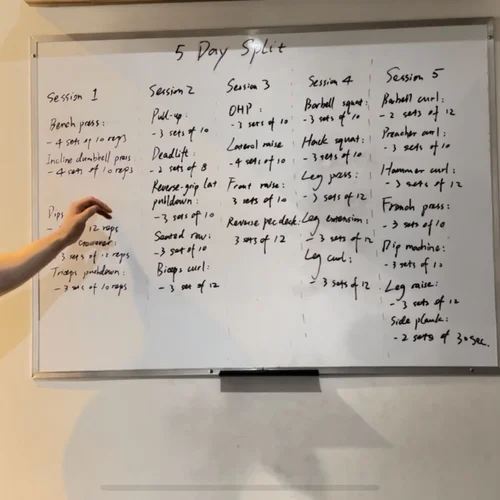 5 Day Split
Session 1
Bench press:
- 4 sets of 10 reps
Incline dumbbell press:
- 4 sets of 10 reps
Dips
12 reps
3 sets of 12 reps
Triceps pushdown:
- 3 sets of 10 reps
Session 2
Pull-up:
- 3 sets of 10
Deadlift:
- 2 sets of 8
Reverse-grip lat
pulldown:
- 3 sets of 10
Seated row:
- 3 sets of 10
Biceps curl:
- 3 sets of 12
Session 3
OHP:
- 3 sets of 10
Lateral raise
- 4 sets of 10
Front raise:
3 sets of 10
Reverse pec deck:
3 sets of 12
Session 4
Barbell squat:
- 3 sets of 10
Hack squat:
- 3 sets of 10
Leg press:
- 3 sets of 12
Leg extension:
- 3 sets of 12
Leg curl:
- 3 sets of 12
Session 5
Barbell curl:
- 2 sets of 12
Preacher curl:
- 3 sets of 10
Hammer curl:
- 3 sets of 12
French press:
- 3 sets of 10
Dip machine:
- 3 sets of 12
Leg raise:
- 3 sets of 12
Side plank:
- 2 sets of 30 sec.